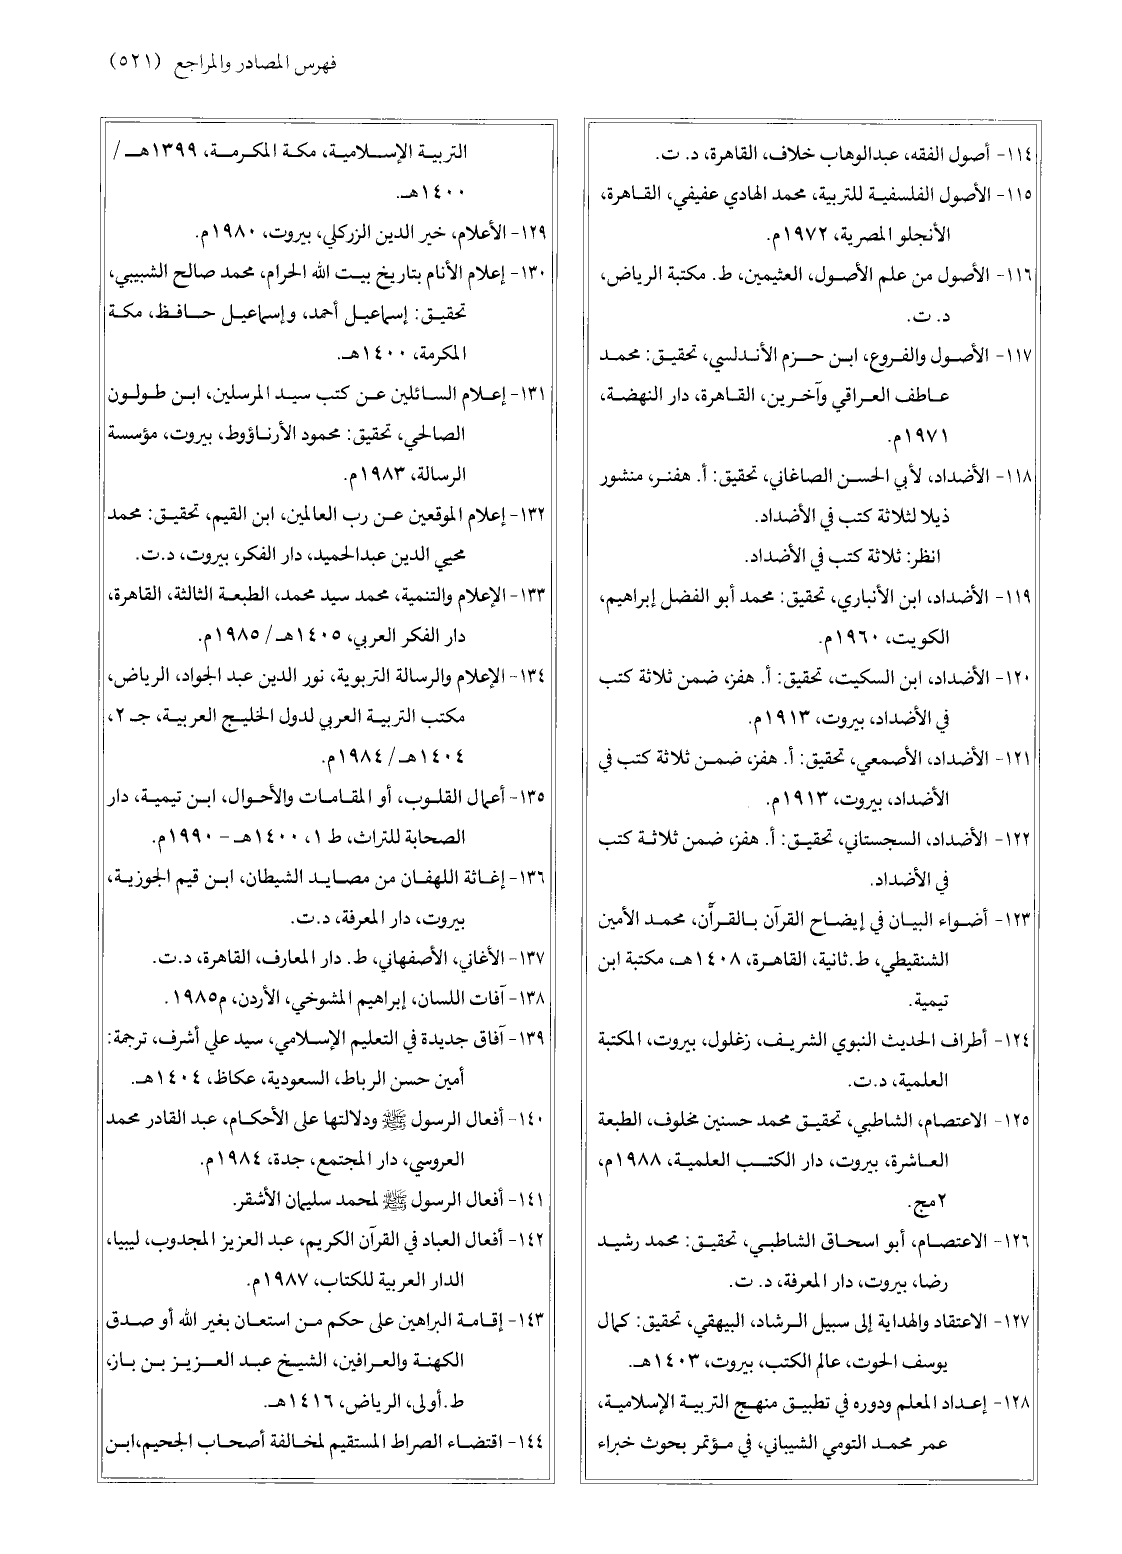 فهرس المصادر والمراجع (٥٢١)
١١٤- أصول الفقه، عبدالوهاب خلاف، القاهرة، د. ت.
١١٥- الأصول الفلسفية للتربية، محمد الهادي عفيفي، القاهرة،
الأنجلو المصرية، ١٩٧٢م.
١١٦- الأصول من علم الأصول، العثيمين، ط. مكتبة الرياض،
د. ت.
١١٧- الأصول والفروع، ابن حزم الأندلسي، تحقيق: محمد
عاطف العراقي وآخرين، القاهرة، دار النهضة،
١٩٧١م.
١١٨- الأضداد، لأبي الحسن الصاغاني، تحقيق: أ. هفنر، منشور
ذيلا لثلاثة كتب في الأضداد.
انظر: ثلاثة كتب في الأضداد.
١١٩- الأضداد، ابن الأنباري، تحقيق: محمد أبو الفضل إبراهيم،
الكويت، ١٩٦٠م.
١٢٠- الأضداد، ابن السكيت، تحقيق: أ. هفز، ضمن ثلاثة كتب
في الأضداد، بيروت، ١٩١٣م.
١٢١- الأضداد، الأصمعي، تحقيق: أ. هفز، ضمن ثلاثة كتب في
الأضداد، بيروت، ١٩١٣م.
١٢٢- الأضداد، السجستاني، تحقيق: أ. هفز، ضمن ثلاثة كتب
في الأضداد.
١٢٣- أضواء البيان في إيضاح القرآن بالقرآن، محمد الأمين
الشنقيطي، ط.ثانية، القاهرة، ١٤٠٨هـ، مكتبة ابن
تيمية.
١٢٤- أطراف الحديث النبوي الشريف، زغلول، بيروت، المكتبة
العلمية، د.ت.
١٢٥- الاعتصام، الشاطبي، تحقيق محمد حسنين مخلوف، الطبعة
العاشرة، بيروت، دار الكتب العلمية، ١٩٨٨م،
٢مج.
١٢٦- الاعتصام، أبو اسحاق الشاطبي، تحقيق: محمد رشيد
رضا، بيروت، دار المعرفة، د. ت.
١٢٧- الاعتقاد والهداية إلى سبيل الرشاد، البيهقي، تحقيق: كمال
يوسف الحوت، عالم الكتب، بيروت، ١٤٠٣هـ.
١٢٨- إعداد المعلم ودوره في تطبيق منهج التربية الإسلامية،
عمر محمد التومي الشيباني، في مؤتمر بحوث خبراء
التربية الإسلامية، مكة المكرمة، ١٣٩٩هـ/
١٤٠٠هـ.
١٢٩- الأعلام، خير الدين الزركلي، بيروت، ١٩٨٠م.
١٣٠- إعلام الأنام بتاريخ بيت الله الحرام، محمد صالح الشيبي،
تحقيق: إسماعيل أحمد، وإسماعيل حافظ، مكة
المكرمة، ١٤٠٠هـ.
١٣١- إعلام السائلين عن كتب سيد المرسلين، ابن طولون
الصالحي، تحقيق: محمود الأرناؤوط، بيروت، مؤسسة
الرسالة، ١٩٨٣م.
١٣٢- إعلام الموقعين عن رب العالمين، ابن القيم، تحقيق: محمد
محيي الدين عبدالحميد، دار الفكر، بيروت، د.ت.
١٣٣- الإعلام والتنمية، محمد سيد محمد، الطبعة الثالثة، القاهرة،
دار الفكر العربي، ١٤٠٥هـ/ ١٩٨٥م.
١٣٤- الإعلام والرسالة التربوية، نور الدين عبد الجواد، الرياض،
مكتب التربية العربي لدول الخليج العربية، جـ ٢،
١٤٠٤هـ/ ١٩٨٤م.
١٣٥- أعمال القلوب، أو المقامات والأحوال، ابن تيمية، دار
الصحابة للتراث، ط ١، ١٤٠٠هـ - ١٩٩٠م.
١٣٦- إغاثة اللهفان من مصايد الشيطان، ابن قيم الجوزية،
بيروت، دار المعرفة، د.ت.
١٣٧- الأغاني، الأصفهاني، ط. دار المعارف، القاهرة، د.ت.
١٣٨- آفات اللسان، إبراهيم المشوخي، الأردن، م١٩٨٥.
١٣٩- آفاق جديدة في التعليم الإسلامي، سيد علي أشرف، ترجمة:
أمين حسن الرباط، السعودية، عكاظ، ١٤٠٤هـ.
١٤٠- أفعال الرسول ﷺ ودلالتها على الأحكام، عبد القادر محمد
العروسي، دار المجتمع، جدة، ١٩٨٤م.
١٤١- أفعال الرسول ﷺ لمحمد سليمان الأشقر.
١٤٢- أفعال العباد في القرآن الكريم، عبد العزيز المجدوب، ليبيا،
الدار العربية للكتاب، ١٩٨٧م.
١٤٣- إقامة البراهين على حكم من استعان بغير الله أو صدق
الكهنة والعرافين، الشيخ عبد العزيز بن باز،
ط.أولى، الرياض، ١٤١٦هـ.
١٤٤- اقتضاء الصراط المستقيم لمخالفة أصحاب الجحيم،ابن